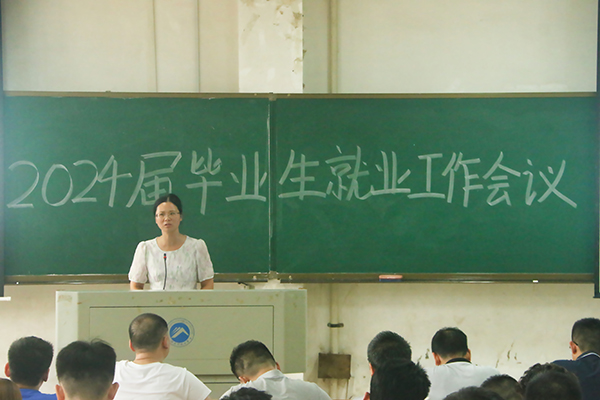 2024届毕业生就业工作会议